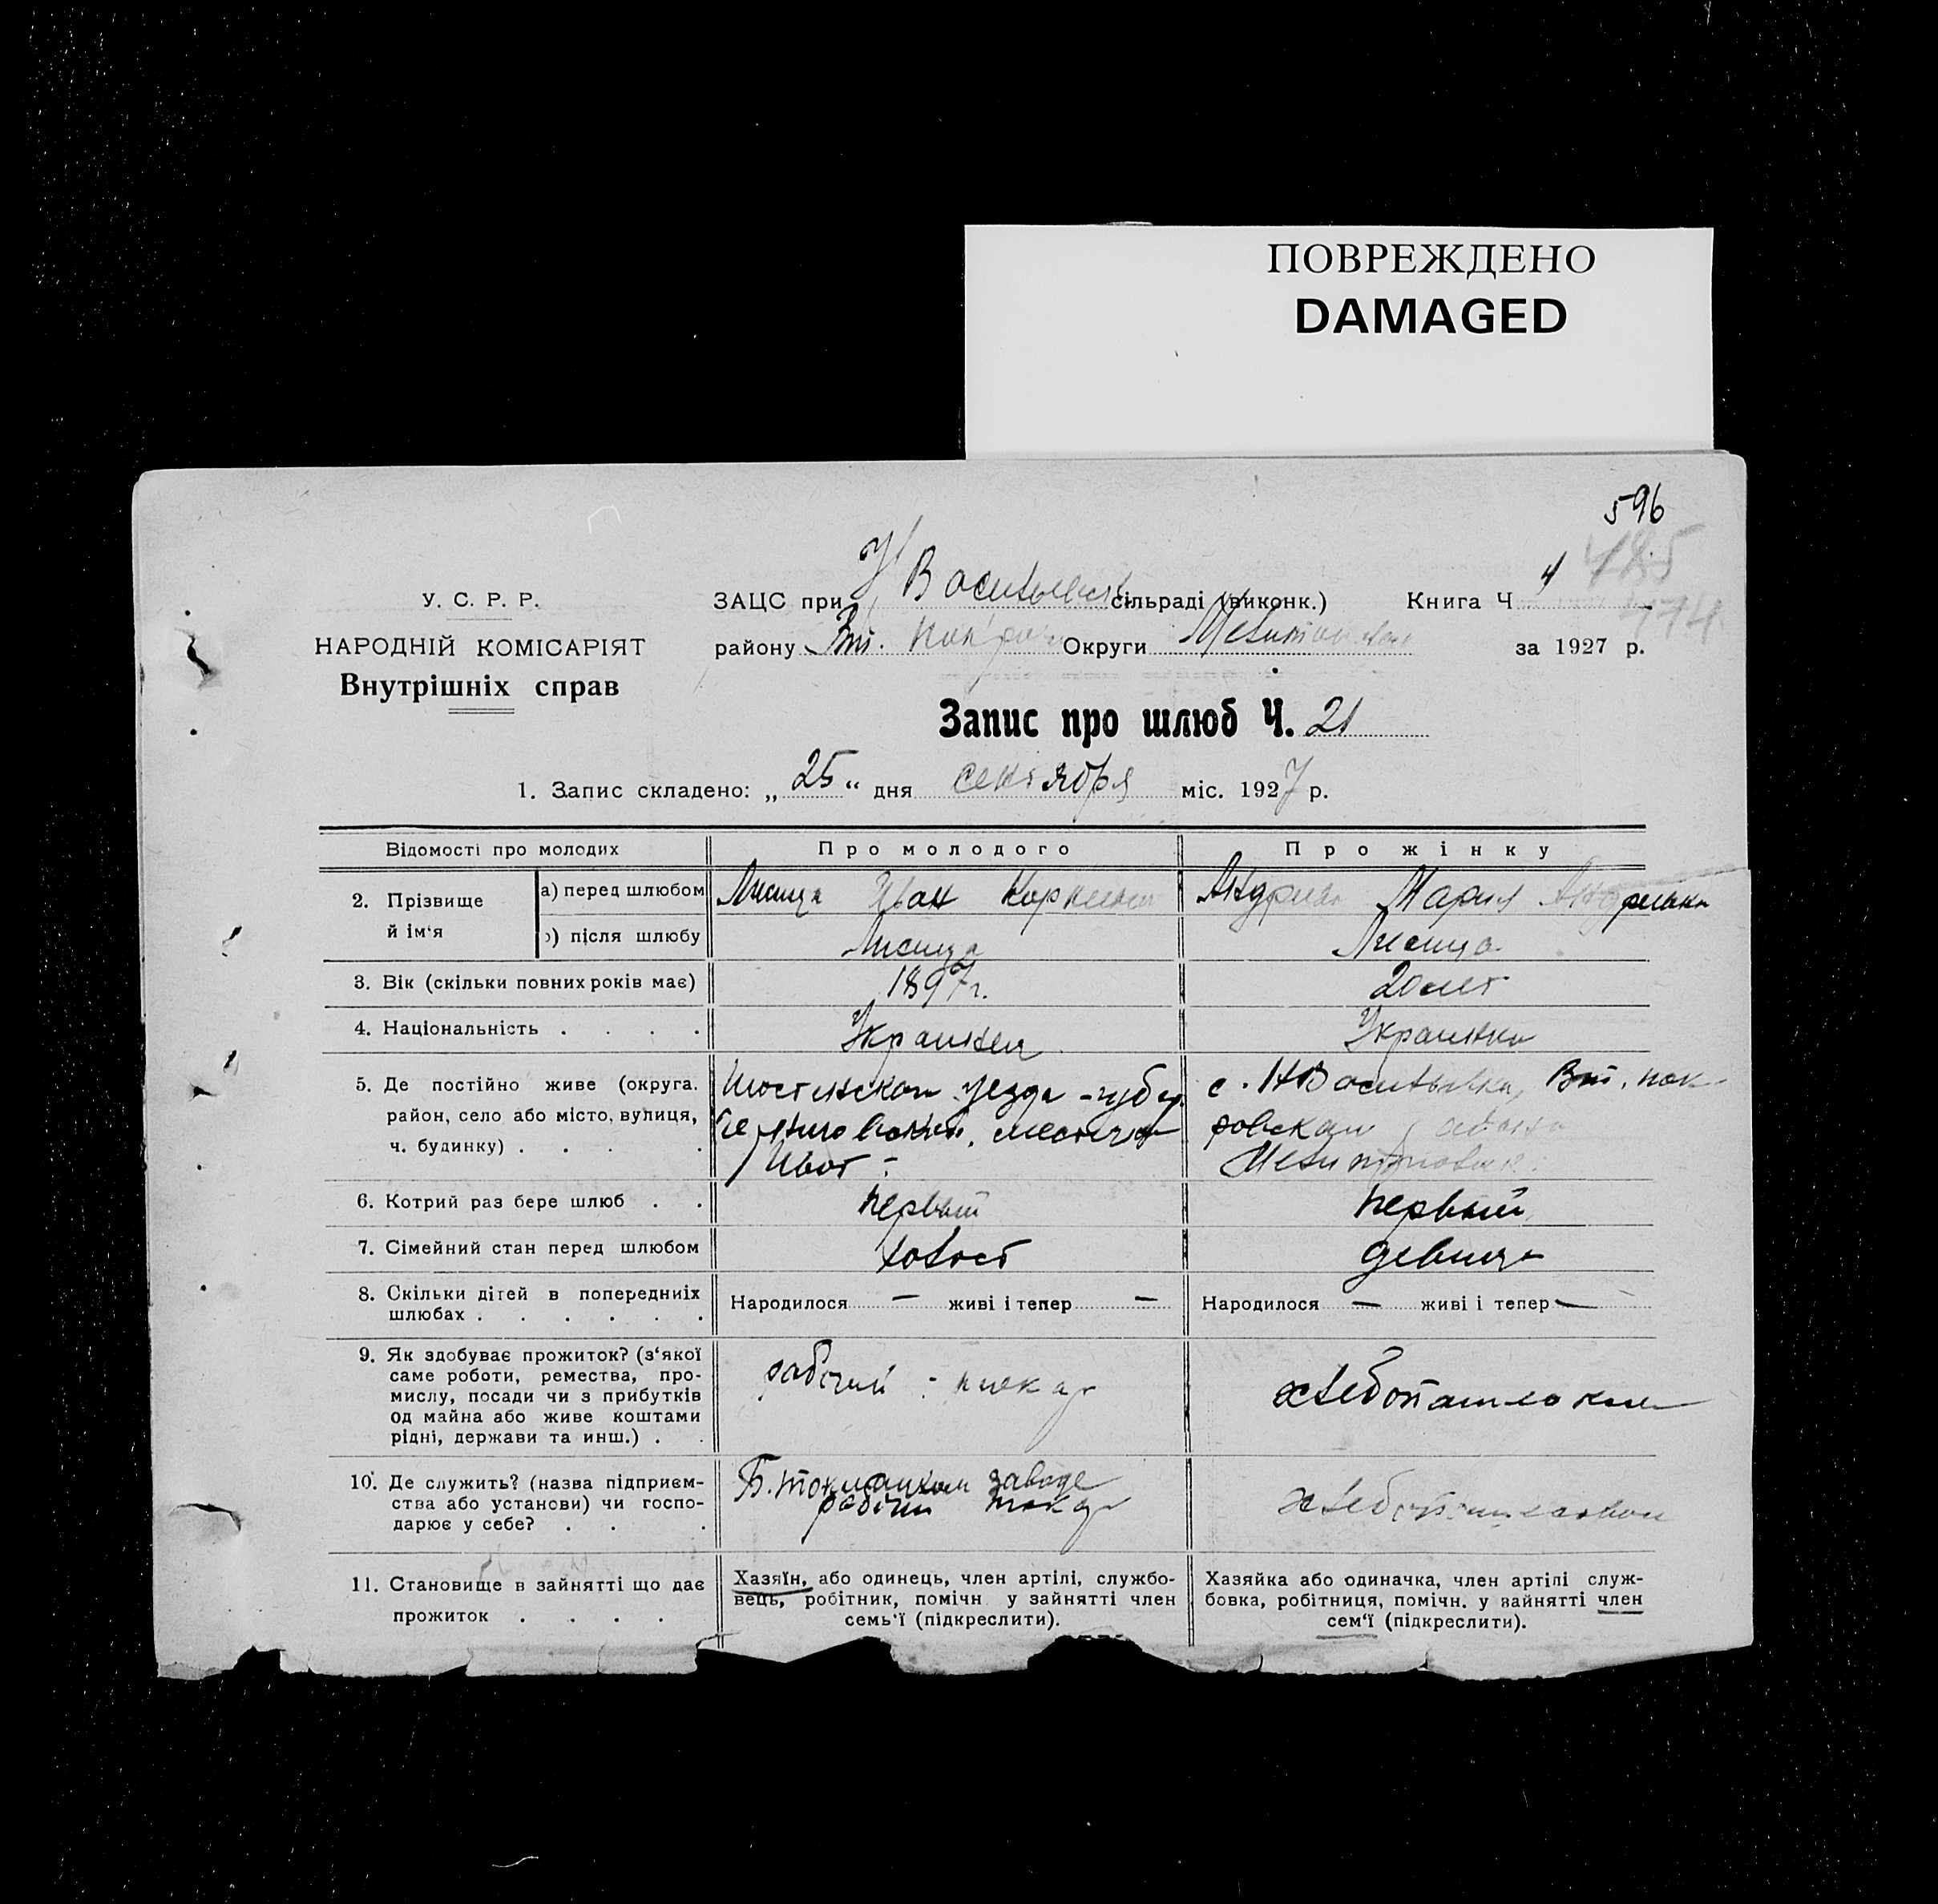 ПОВРЕЖДЕНО
DAMAGED
596
485
474
У. С. Р. Р.
НАРОДНІЙ КОМІСАРІЯТ
Внутрішніх справ
ЗАЦС при Н Васильевск сільраді (виконк.) Книга Ч 4
району Вт. Округи за 1927 р.
Запис про шлюб Ч. 21
1. Запис складено: „ 25 “ дня сентября міс. 1927 р.
Відомості про молодих Про молодого Про жінку
2. Прізвище й ім‘я
а) перед шлюбом Лисица Иван Мария
) після шлюбу Лисица Лисица
3. Вік (скільки повних років має) 1897 г. 20 лет
4. Національність . . . . Украинец Украинка
5. Де постійно живе (округа. район, село або місто, вулиця, ч. будинку) . . . .
уезда губер.
Ивот
с. НВасильевка, Вт. пок-
ровскаи
6. Котрий раз бере шлюб . . первый первый
7. Сімейний стан перед шлюбом холост девица
8. Скільки дітей в попередниіх шлюбах . . . . . .
Народилося — живі і тепер — Народилося — живі і тепер —
9. Як здобуває прожиток? (з‘якої
саме роботи, ремества, про-
мислу, посади чи з прибутків
од майна або живе коштами
рідні, держави та инш.) . .
рабочий
10. Де служить? (назва підприєм-
ства або установи) чи госпо-
дарює у себе? . . .
Б. заводе
рабочи токар
11. Становище в зайнятті що дає
прожиток . . . .
Хазяїн, або одинець, член артілі, службо-
вець, робітник, помічн у зайнятті член
семь‘ї (підкреслити).
Хазяйка або одиначка, член артілі служ-
бовка, робітниця, помічн. у вайнятті член
сем‘ї (підкреслити).